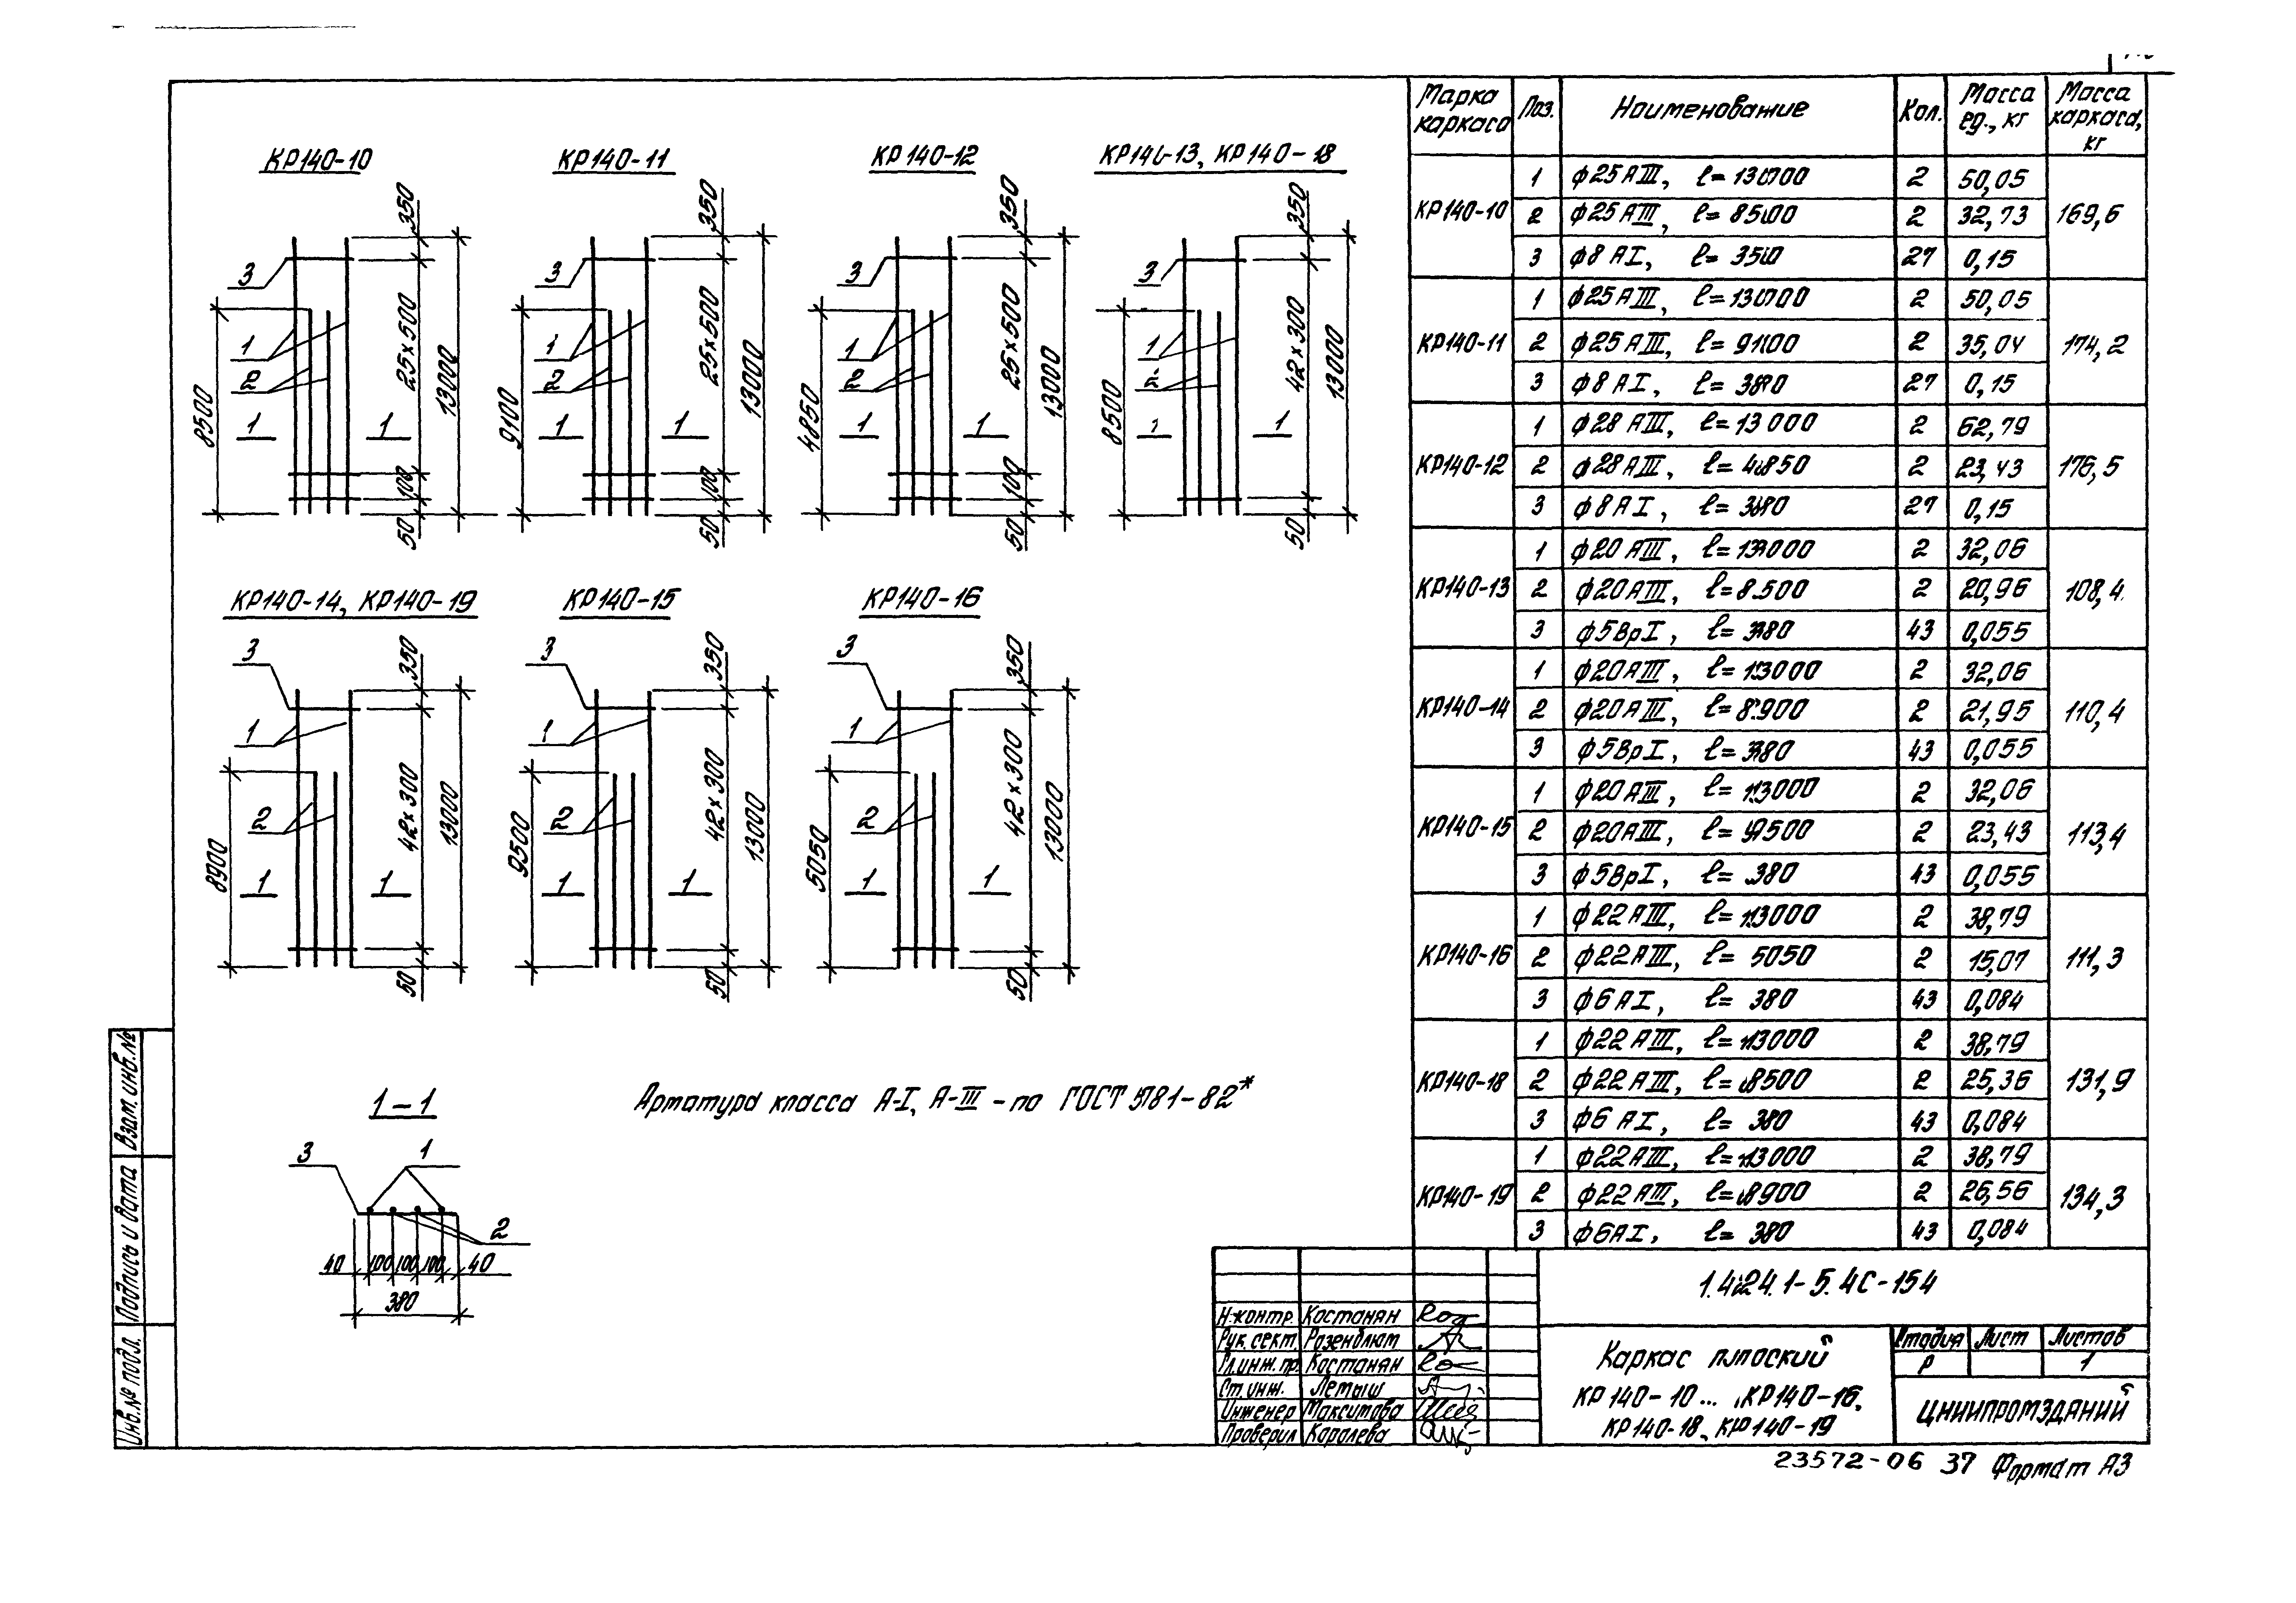 КР140-10
КР140-11
КР140-12
КР140-13, КР140-18
350
25×500
13000
100
50
8500
3
1
2
1 1
350
25×500
13000
100
50
9100
3
1
2
1 1
350
25×500
13000
100
50
4850
3
1
2
1 1
350
42×300
13000
50
8500
3
1
2
1 1
КР140-14, КР140-19
КР140-15
КР140-16
350
42×300
13000
50
8900
3
1
2
1 1
350
42×300
13000
50
9500
3
1
2
1 1
350
42×300
13000
50
5050
3
1
2
1 1
1-1
3 1
2
40 100 100 100 40
380
Арматура класса А-I, А-III - по ГОСТ 5781-82*
Марка каркаса Поз. Наименование Кол. Масса ед., кг Масса каркаса, кг
КР140-10 169,6
1 ф25 АIII, ℓ= 13000 2 50,05
2 ф25 АIII, ℓ= 8500 2 32,73
3 ф8 АI, ℓ= 380 27 0,15
КР140-11 174,2
1 ф25 АIII, ℓ= 13000 2 50,05
2 ф25 АIII, ℓ= 9100 2 35,04
3 ф8 АI, ℓ= 380 27 0,15
КР140-12 176,5
1 ф28 АIII, ℓ= 13000 2 62,79
2 ф28 АIII, ℓ= 4850 2 23,43
3 ф8 АI, ℓ= 380 27 0,15
КР140-13 108,4
1 ф20 АIII, ℓ= 13000 2 32,06
2 ф20 АIII, ℓ= 8500 2 20,96
3 ф5ВрI, ℓ= 380 43 0,055
КР140-14 110,4
1 ф20 АIII, ℓ= 13000 2 32,06
2 ф20 АIII, ℓ= 8900 2 21,95
3 ф5ВрI, ℓ= 380 43 0,055
КР140-15 113,4
1 ф20 АIII, ℓ= 13000 2 32,06
2 ф20 АIII, ℓ= 9500 2 23,43
3 ф5ВрI, ℓ= 380 43 0,055
КР140-16 111,3
1 ф22 АIII, ℓ= 13000 2 38,79
2 ф22 АIII, ℓ= 5050 2 15,07
3 ф6 АI, ℓ= 380 43 0,084
КР140-18 131,9
1 ф22 АIII, ℓ= 13000 2 38,79
2 ф22 АIII, ℓ= 8500 2 25,36
3 ф6 АI, ℓ= 380 43 0,084
КР140-19 134,3
1 ф22 АIII, ℓ= 13000 2 38,79
2 ф22 АIII, ℓ= 8900 2 26,56
3 ф6АI, ℓ= 380 43 0,084
1.424.1-5.4С-154
Н.контр. Костанян
Рук. сект. Розенблюм
Гл.инж. пр. Костанян
Ст. инж. Летыш
Инженер Максимова
Проверил Королева
Каркас плоский
КР140-10... КР140-16,
КР140-18, КР140-19
Стадия Лист Листов
Р 1
ЦНИИПРОМЗДАНИЙ
23572-06 37 Формат А3
Взам. инв. №
Подпись и дата
Инв. № подл.